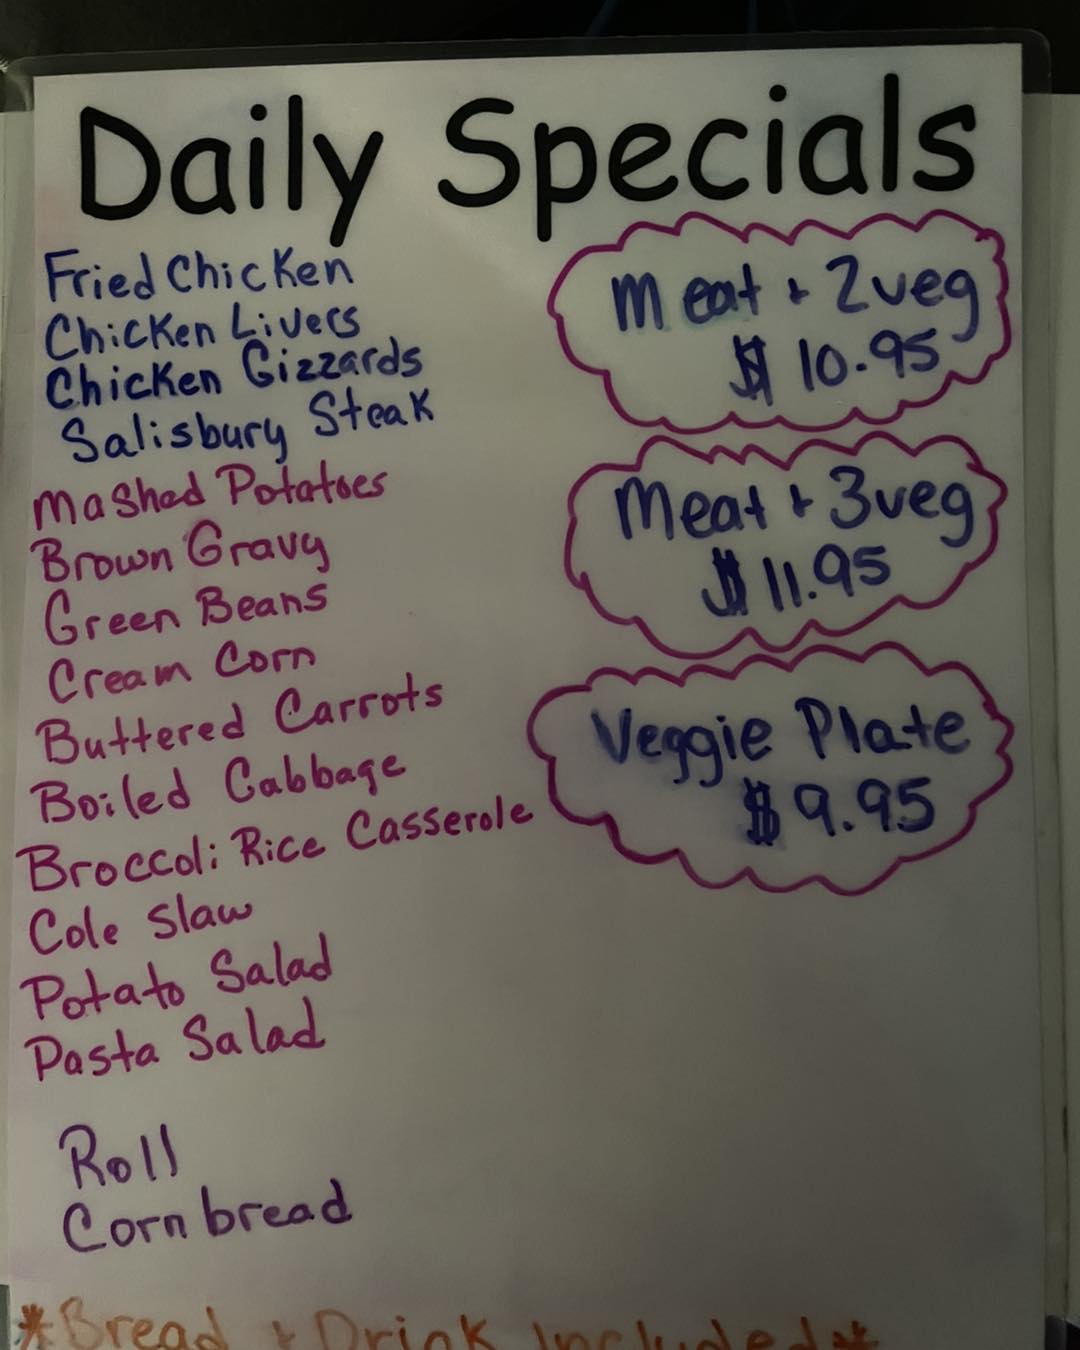 Daily Specials
Fried Chicken
Chicken Livers
Chicken Gizzards
Salisbury Steak
Mashed Potatoes
Brown Gravy
Green Beans
Cream Corn
Buttered Carrots
Boiled Cabbage
Broccoli Rice Casserole
Cole Slaw
Potato Salad
Pasta Salad
Roll
Corn bread
Meat + 2veg
$ 10.95
Meat + 3veg
$ 11.95
Veggie Plate
$ 9.95
*Bread + Drink Included*